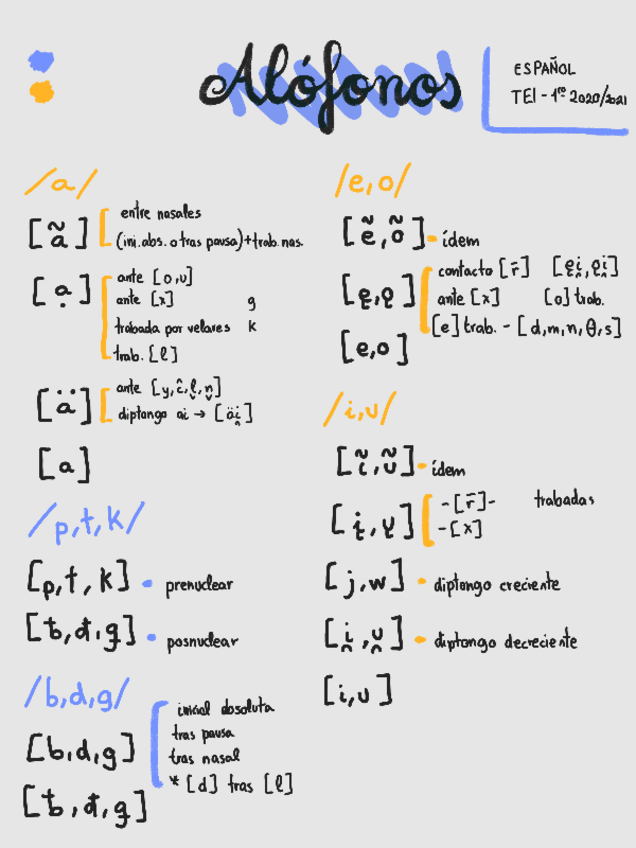 Alófonos
ESPAÑOL
TEI - 1ro 2020/2021
/a/
[ã] entre nasales
(ini. abs. o tras pausa) + trab. nas.
[ạ] ante [o,u]
ante [x] g
trabada por velares k
trab. [l]
[ä] ante [y, ĉ, ḽ, ṋ]
diptongo ai → [äi̯]
[a]
/p,t,k/
[p,t,k] • prenuclear
[ƀ,đ,ǥ] • posnuclear
/b,d,g/
[b,d,g] inicial absoluta
tras pausa
tras nasal
* [d] tras [l]
[ƀ,đ,ǥ]
/e,o/
[ẽ,õ] • ídem
[ę,ǫ] contacto [r̄] [ęi̯,ǫi̯]
ante [x] [o] trab.
[e] trab. - [d,m,n,θ,s]
[e,o]
/i,u/
[ĩ,ũ] • ídem
[į,ų] -[r̄]- trabadas
-[x]
[j,w] • diptongo creciente
[i̯,u̯] • diptongo decreciente
[i,u]